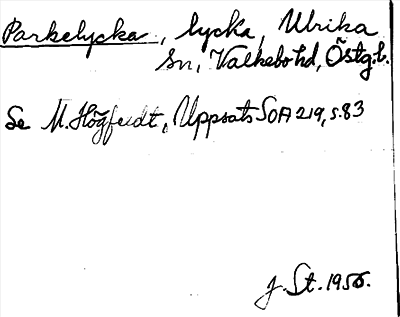 Parkelycka, lycka, Ulrika
sn, Valkebo hd, Östg.l.
Se M. Högfeldt, Uppsats SOA 219, s. 83
J. St. 1956.